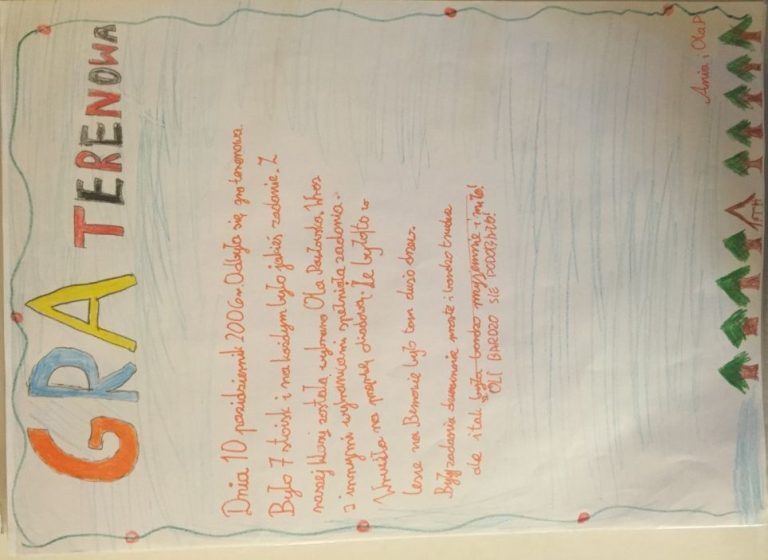 GRA TERENOWA
Dnia 10 pazidziernik 2006r. Odbyła się gra terenowa
Było 7 stoisk i na każdym było jakieś zadanie. Z
naszej klasy została wybrana Ola Pawłowska. Wraz
z innymi wybrańcami spełniała zadania.
na
że było to w
lesie na Bemowie było tam dużo drzew.
Były zadania proste i bardzo trudne
ale i tak było bardzo przyjemnie i miło!
OLI BARDZO SIĘ PODOBAŁO!
Ania i Ola P